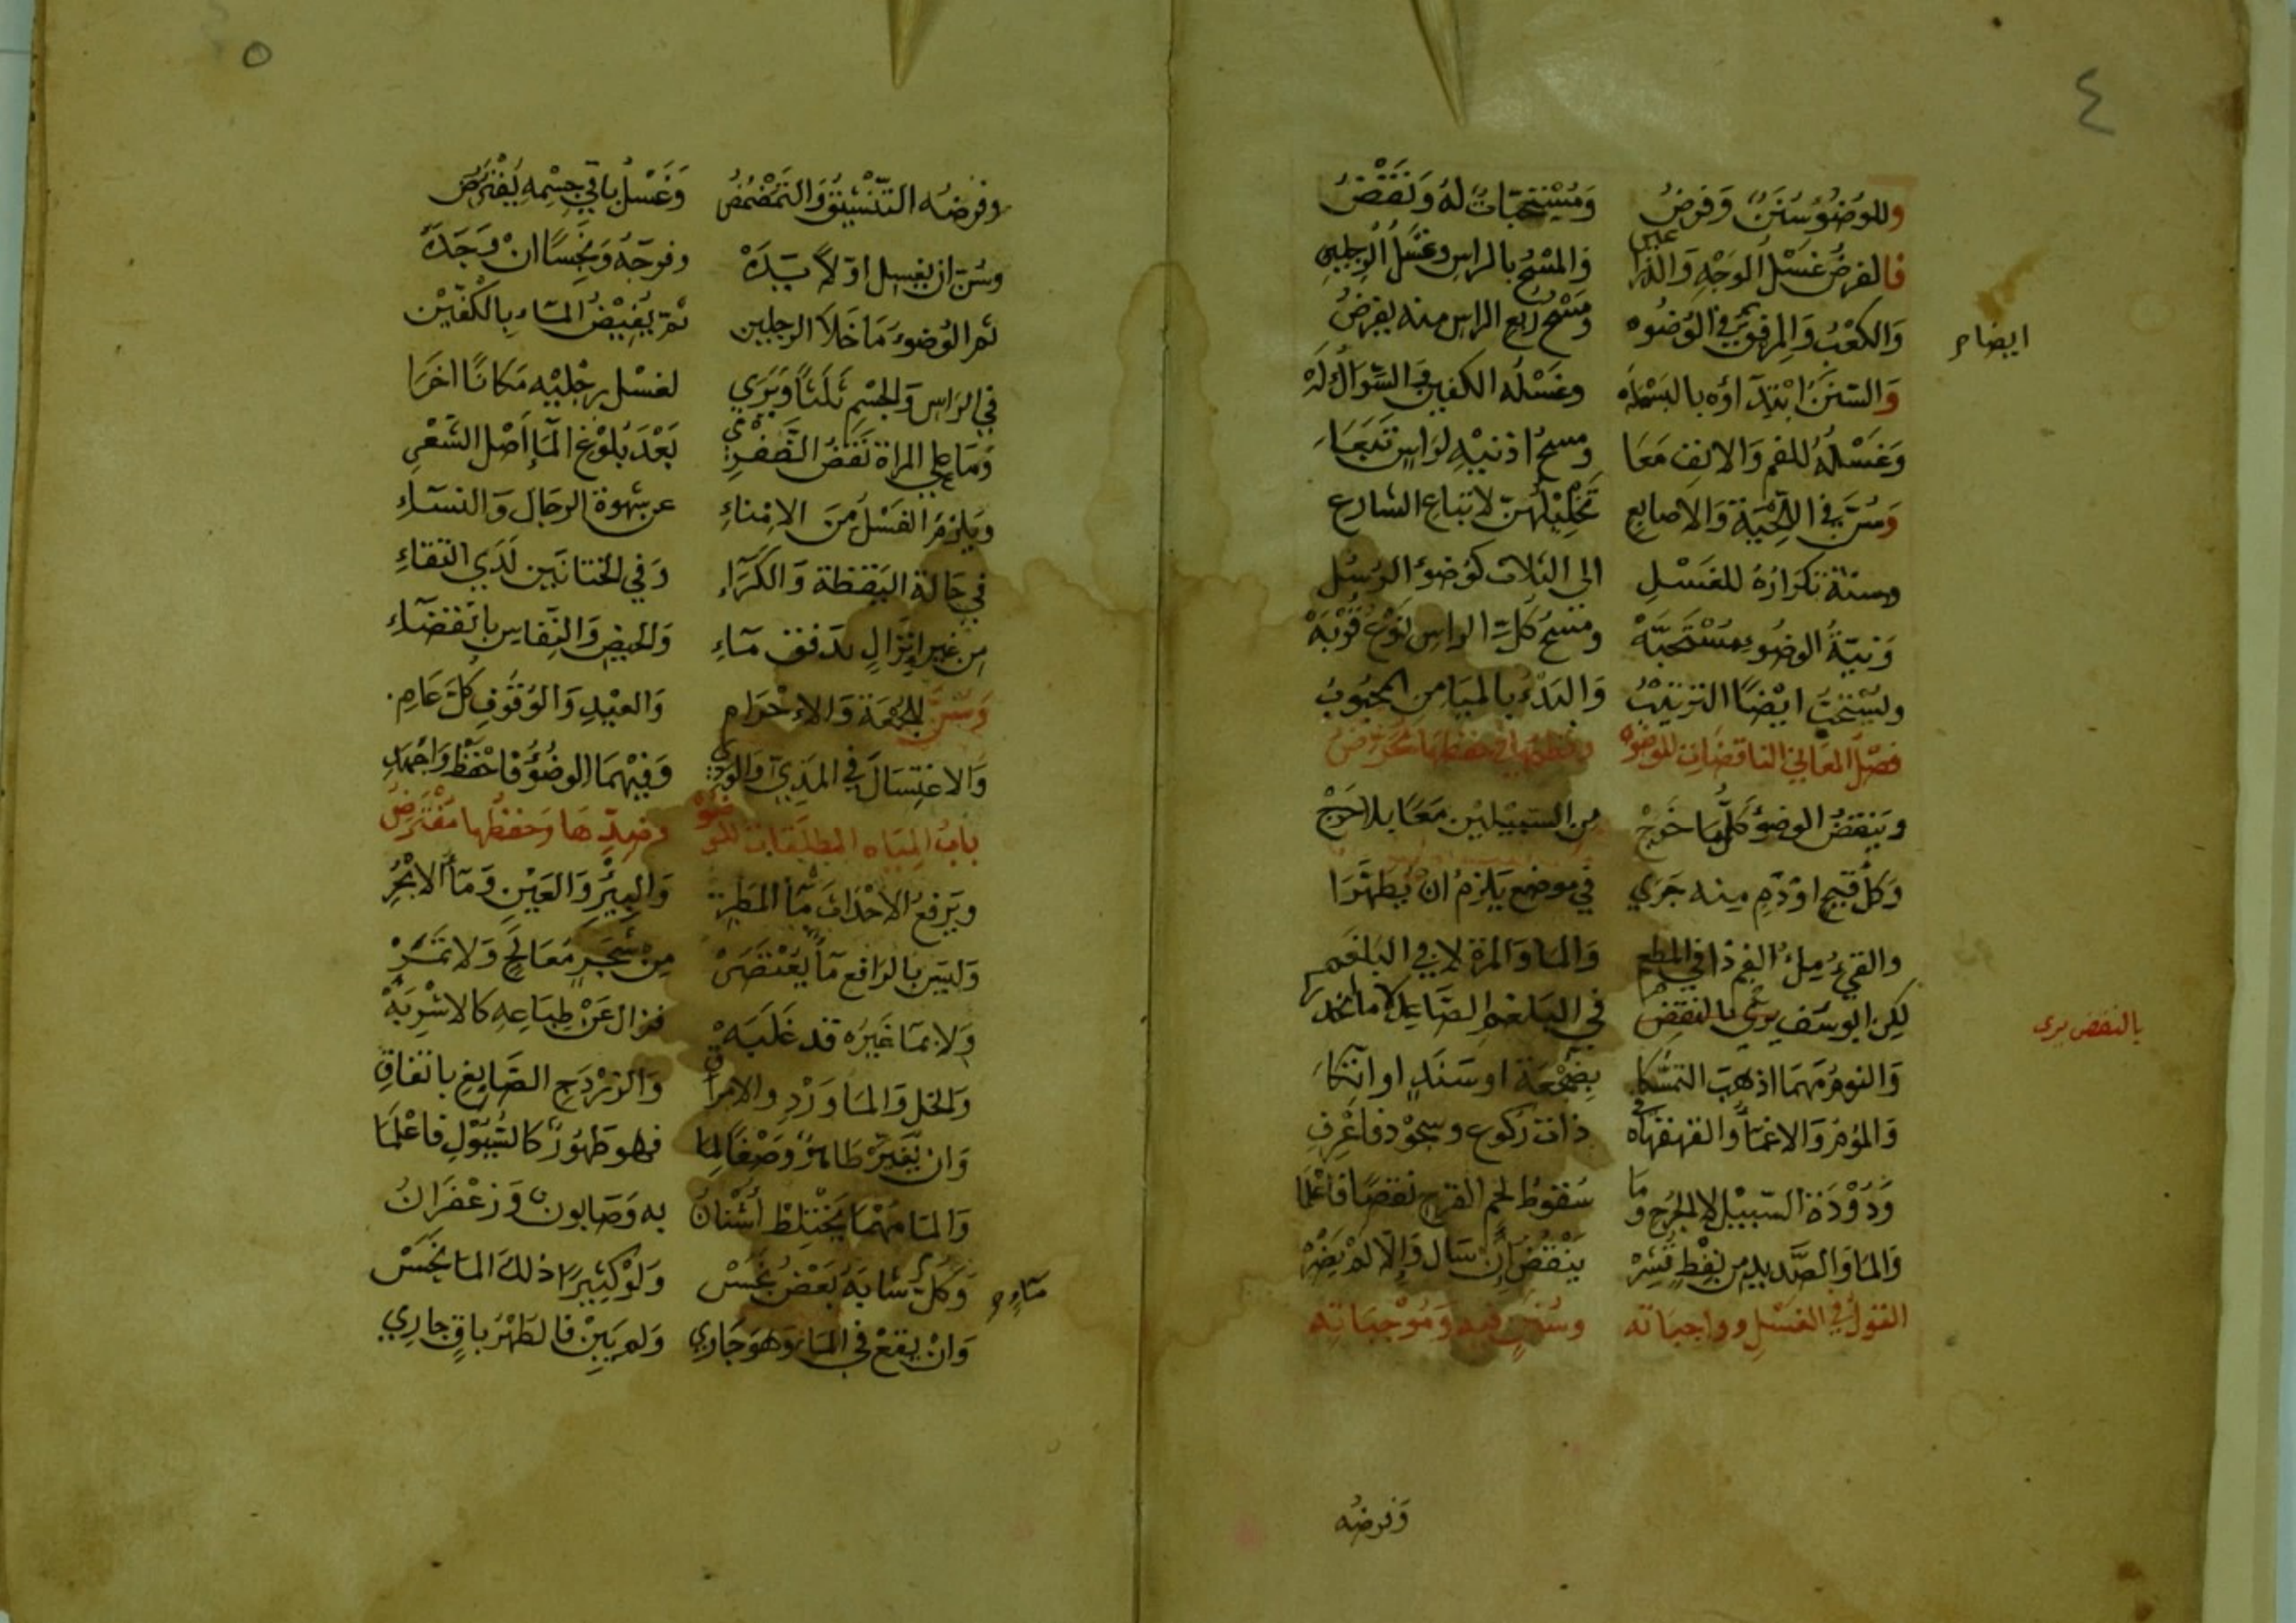 ٤
وللوضوء سُنَنٌ وَفرضُ وَمُسْتَحَبّاتٌ لهُ وَنَقْضُ
فالفرضُ غسْلُ الوَجْهِ وَالذراعين وَالمسْحُ بالراسِ وغسْلُ الرجلين
وَالكعْبُ وَالمرفق في الوُضوء ومَسْحُ رُبع الراس منه يفرضُ
ايضا
وَالسّنَنُ ابْتِدَآاؤه بالبَسْمله وغَسْلُه الكفين في السّوَاكُ لَهْ
وَغَسْلُهُ للفم وَالانف مَعَا ومسحُ اذنيْهِ لرَاسٍ تَبَعَا
وَسُنَّ في اللّحْيَة وَالاصابع تَخْلِيْلُهنّ لاتباع الشارع
وسنة تكرَارُهُ للغَسْلِ الى الثلاث كوُضوء الرسُل
وَنيّةُ الوضُوءِ مُسْتَحَبَّهْ ومسْحُ كلّ الراس نَوْعُ قُرْبَهْ
ويُسْتحبّ ايْضًا الترتيْبُ وَالبَدْءُ بالميَامِن المحبُوبُ
فصْل المعَاني الناقضَات للوضوء
وينقضُ الوضوءُ كلّمَا خَرَجْ من السبيْلين مَعًا بلا حَرَجْ
وَكلُّ قيح اوْ دَمٍ منه جَرَي في موضع يَلزمُ انْ يُطهّرَا
والقيءُ مِلءُ الفمِ ذا في المطعم وَالما وَالمرة لا في البَلغَم
لكن ابو يوسُف يرَي بالنقض في البَلغمِ الصّاعِد لا
بالنقض يرى
وَالنومُ مَهمَا اذهبَ التمسُّكا بِضَجْعَة اوسَنَدٍ او اتكَا
وَالنوم وَالاغمَآ والقهقهَاه في ذات ركوع وسجوْد فاعْرِف
وَدُوْدَة السّبيْل لا الجُرح وَمَا سُقوط لحم القرح نقضًا فاعْلَمَا
وَالما وَالصَّديد من نِفْطٍ قُشِرْ يَنْقُضُ إنْ سَال وَإلّا لمْ يَضُرْ
القولُ في الغسْلِ وواجبَاته وسُنَنٍ فيه وَمُوْجبَاته
وَفرضُه
٥
وفرضُه التنْشيْقُ وَالتَمَضْمُضُ وَغَسْلُ باقي جِسْمِهِ يُفْتَرضُ
وسُنّ ان يغسِل اوّلاً يَدَهْ وفرجَهُ وَنجِسًا انْ وَجَدَهْ
ثم الوُضوءُ مَا خَلا الرجلين ثمّ يُفِيْضُ المَاء بالكفّيْن
في الرَاس وَالجِسْم ثَلَثًا وَيَرَي لغسْل رجْليْه مَكانًا اخرَا
وَمَا علي المراة نَقضُ الضّفْرِ بَعْدَ بُلوْغ المَآ اَصْل الشَعْرِ
ويَلزمُ الغسْلُ مِنَ الامْناءِ عن شهوة الرجَال وَالنسَآءِ
في حَالة اليَقظة وَالكَرَآءِ وَفي الختانَيْن لَدَي التقاءِ
من غير انزَالٍ بدَفق مَاءِ وَالحيض وَالنّفاس بانْقضَآءِ
وَسُنّ للجُمْعَة وَالإحْرَام وَالعيْدِ وَالوُقوْفِ كلّ عَامِ
وَالاغتِسَالَ في المَذِيّ وَالوَدي وَفيْهمَا الوضُوْءُ فاحْفَظْ وَاجْهَدِ
بابُ المِيَاه المطلقات للوضو وضِدّهَا وَحفظُها مفتَرَضُ
ويَرفعُ الاحْدَاث مَآءُ المَطرِ وَالبِيْرُ وَالعَيْن وَمَآءُ الابْحُرِ
وَليسَ بالرَافع مَآءُ يُعْتَصَرْ مِنْ شَجَرٍ مَعَالجٍ وَلا ثمَرْ
وَلا بمَا غيرُه قد غَلبَهْ فزال عَنْ طِبَاعِهِ كالاشْرِبَهْ
وَالخل وَالمَا وَرْدِ والامراق وَالزرْدَجِ الصَّابغ باتفاقِ
وَان يُغيّرْ طاهرٌ وَصْفًا لمَا فهو طَهُوْرٌ كالسُّيُوْلِ فاعْلمَا
وَالمَا مَهْمَا يَخْتَلِطْ اُشْنَانُ به وَصَابونٌ وَزعْفَرَانُ
وَكلّ مَآءٍ شابَهُ بَعْضُ نجسْ وَلَوْ كثيرًا ذلكَ المَا نَجَسْ
مَآءٍ
وَانْ يقعْ في المَاء وَهوَ جَاري وَلم يَبِنْ فالطهْرُ باقٍ جاري